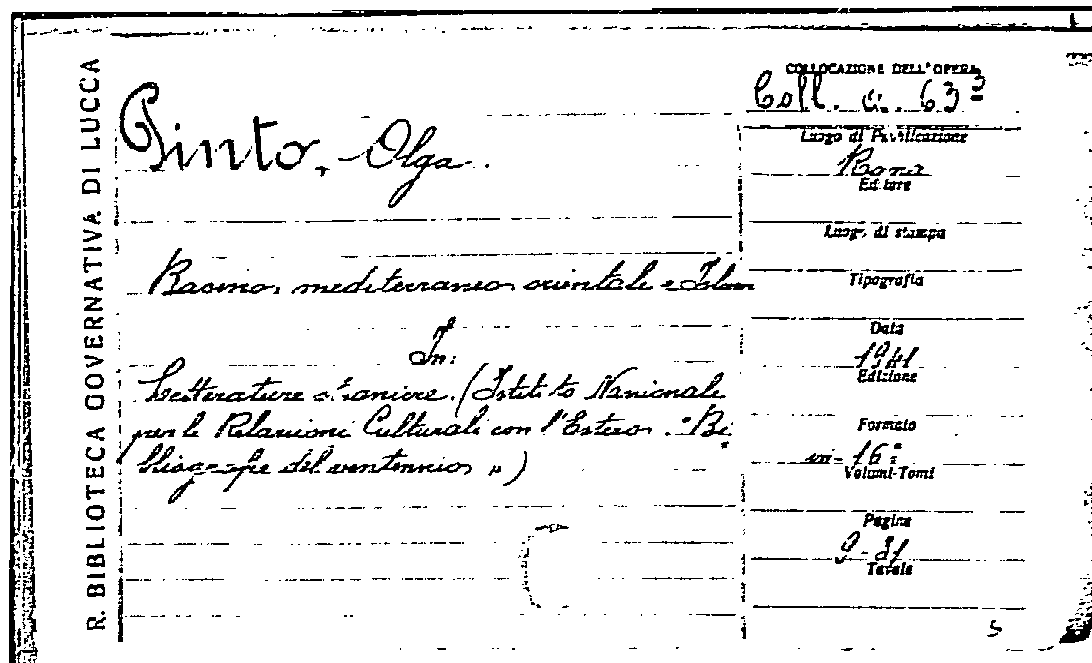 R. BIBLIOTECA GOVERNATIVA DI LUCCA
Pinto, Olga.
Bacino mediterraneo orientale e Islam
In:
Letterature straniere. (Istituto Nazionale
per le Relazioni Culturali con l'Estero. "Bi
bliografie del ventennio")
COLLOCAZIONE DELL'OPERA
Coll. G. 63
Luogo di Pubblicazione
Roma
Editore
Luogo di stampa
Tipografia
Data
1941
Edizione
Formato
in-16°
Volumi-Tomi
Pagine
9-31
Tavole
5